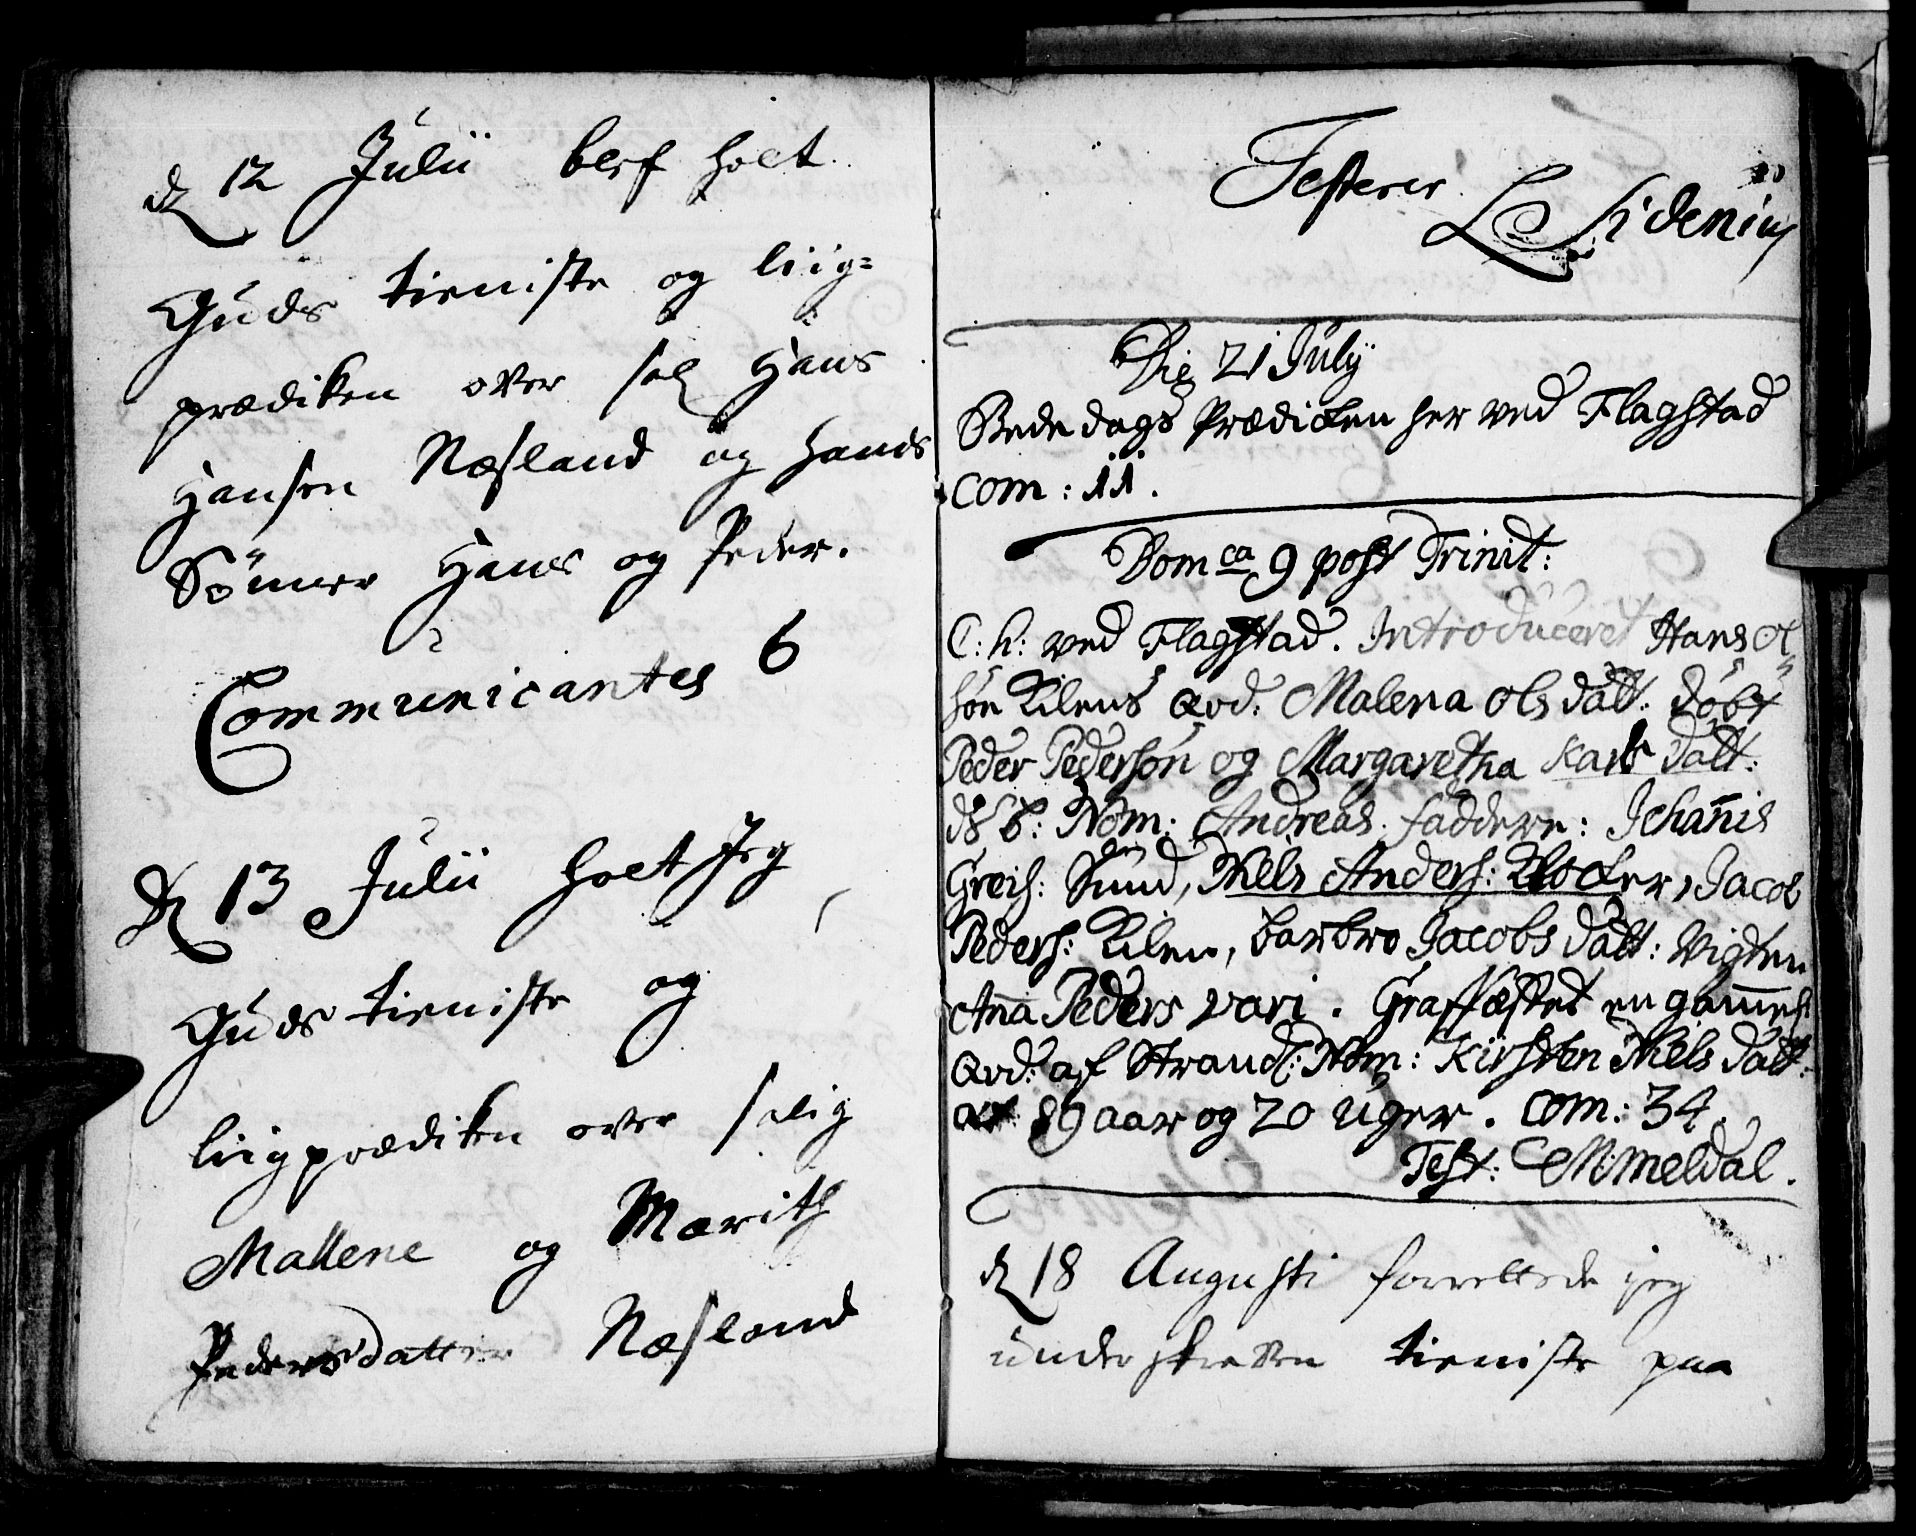 d 12 Julii blef holt
Guds tieniste og liig=
prædiken over sal Hans
Hansen Næsland og hands
Sønner Hans og Peder.
Communicantes 6
d 13 Julii holt Jeg
Guds tieniste og
liigprædiken over salig
Mallene og Marith
Pedersdatter Næsland
Testerer L Sidenius
Die 21 July
Bededags Prædicken her ved Flagstad
Com: 11.
Domca 9 post Trinit:
C: h: ved Flagstad. Introduceret Hans Ol
søn Kilens Qvd: Malena Ols datt: døbt
Peder Pedersøn og Margaretha Karls datt:
ds b: Nom: Andreas. faddere: Johannis
Greis: Sund, Niels Anders: Klocker, Jacob
Peders: Kilen, barbro Jacobs datt: Vigten
Anna Peders vari. Graffæstet en gammel
Qvd: af Strand: Nom: Kirsten Niels datt:
89 aar og 20 uger. Com: 34.
Test: M: Meldal.
d 18 Augusti forrettede jeg
underskreven tieniste paa